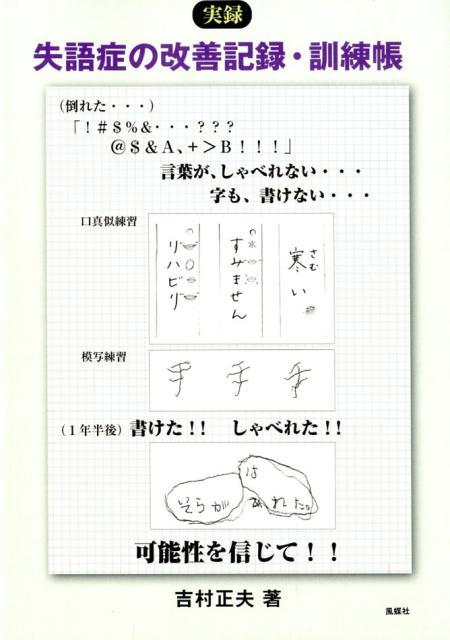 実録
失語症の改善記録・訓練帳
(倒れた・・・)
「!#$%&・・・???
@$&A、+>B!!!」
言葉が、しゃべれない・・・
字も、書けない・・・
口真似練習
リハビリ
すみません
寒い
さむ
模写練習
手 手 手
(1年半後) 書けた!! しゃべれた!!
そらが
は れた。
可能性を信じて!!
吉村正夫 著
風媒社